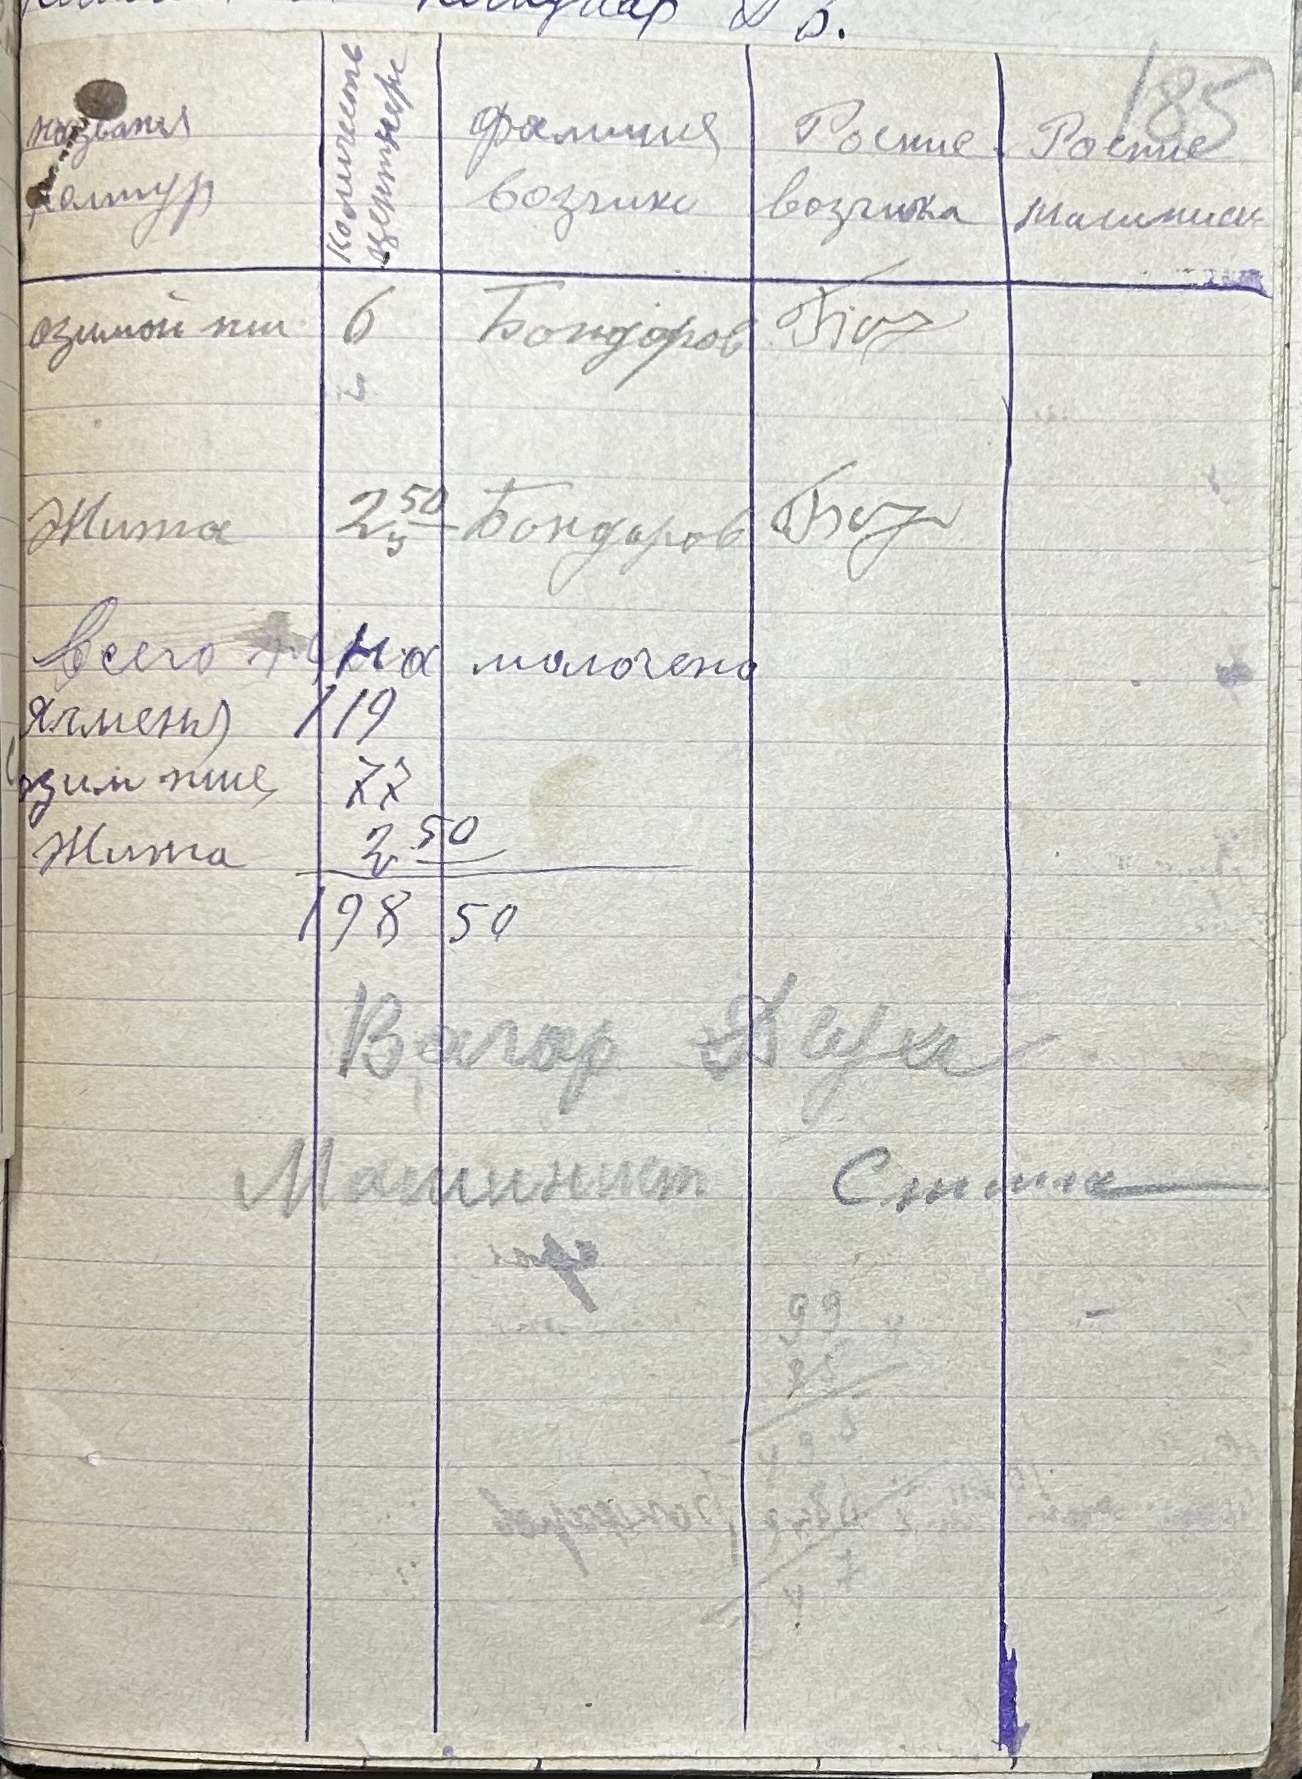 185
названия культур
Количество центнер
фамилия возчика
Роспис возчика
Роспис машинис
озимой пш 6 Бондаров
Жита 2 50 Бондаров
Всего на молочено
Ячменя 119
озим пше 77
Жита 2.50
198 50
Вагар
Машинист